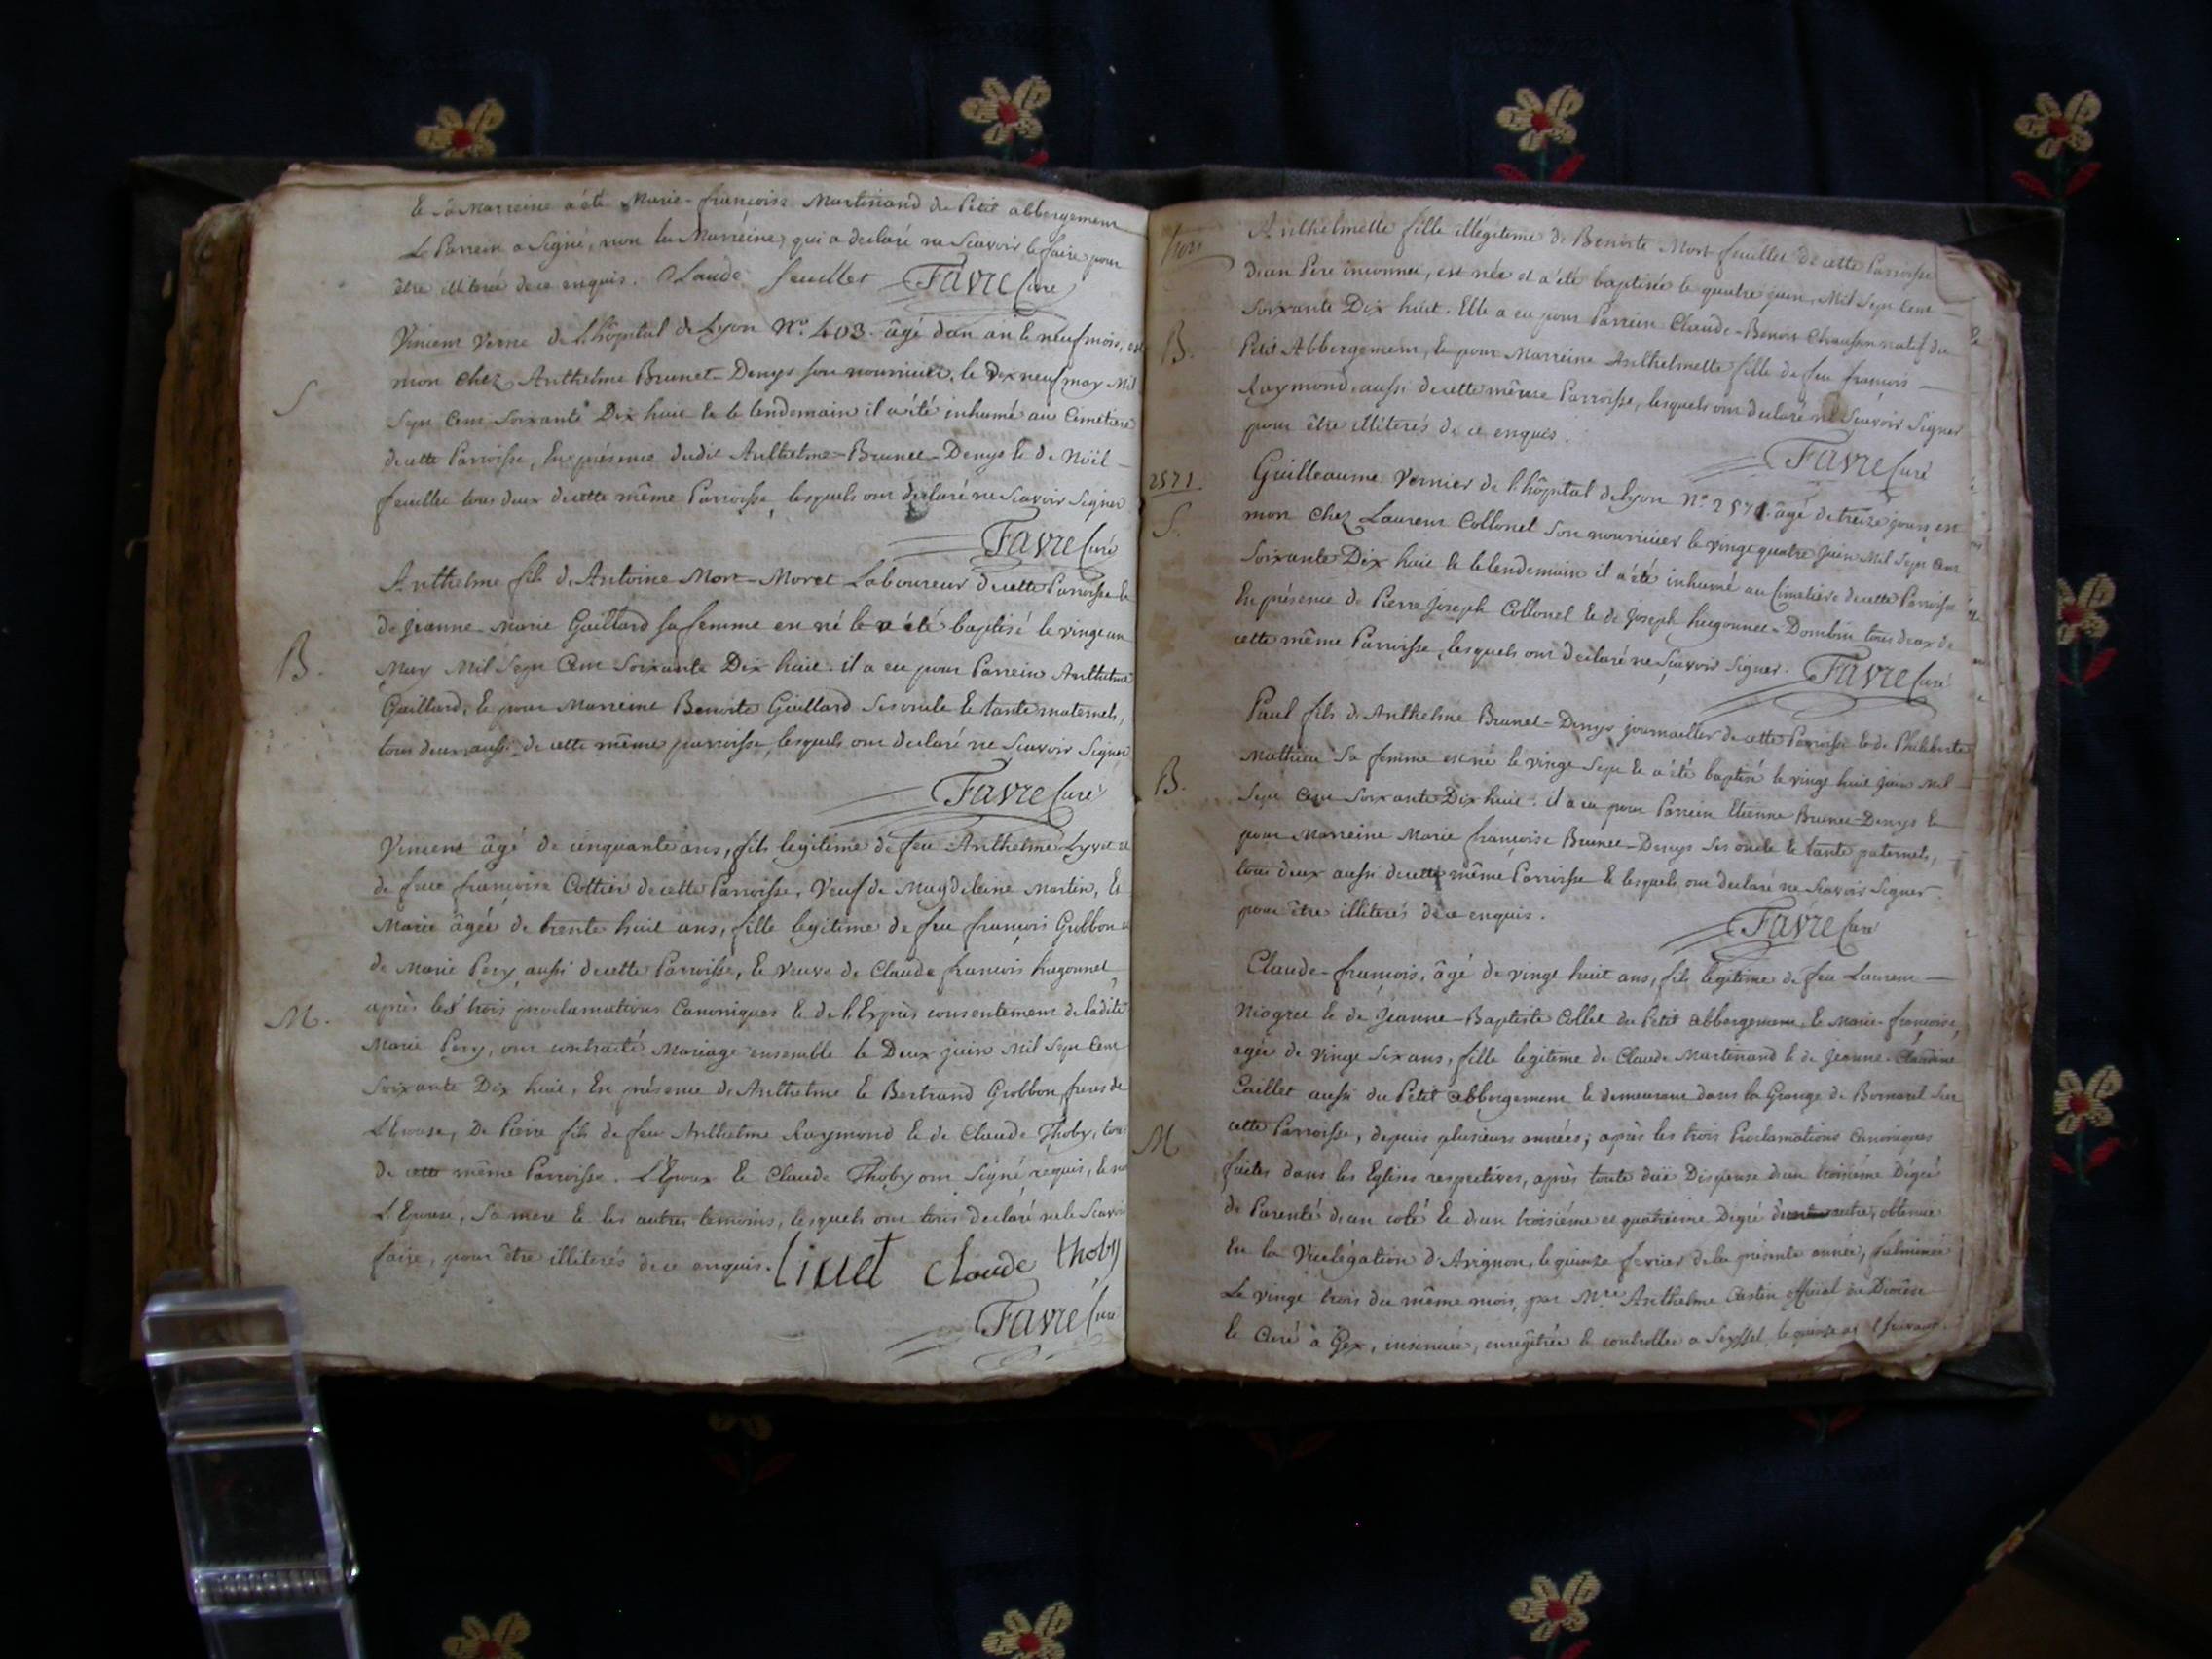 et sa Marreine a été Marie-françoise Martinand du Petit abbergement
Le Parrein a Signé, non la Marreine, qui a declaré ne Scavoir le faire pour
être illiteré de ce enquis. Claude feuillet Favre Curé
Vincent Verne de l'hôpital de Lyon N.º 403. âgé d'un an et neuf mois, est
S
mort chez Anthelme Brunet-Denys son nourricier, le Dix neuf may Mil
Sept Cent Soixante Dix huit et le lendemain il a été inhumé au Cimetiere
de cette Parroisse, En présence dudit Anthelme-Brunet-Denys et de Noël
feuillet tous deux de cette même Parroisse, lesquels ont declaré ne Scavoir Signer
Favre Curé
Anthelme fils d'Antoine Mort-Moret Laboureur de cette Parroisse et
de Jeanne-Marie Gaillard sa femme est né et a été baptisé le vingt un
B.
May Mil Sept Cent Soixante Dix huit. il a eu pour Parrein Anthelme
Gaillard, et pour Marreine Benoite Gaillard Ses oncle et tante maternels,
tous deux aussi de cette même parroisse, lesquels ont declaré ne Scavoir Signer
Favre Curé
Vincent âgé de cinquante ans, fils legitime de feu Anthelme Lyvet et
de feue françoise Cottier de cette Parroisse, Veuf de Magdeleine Martin, Et
Marie âgée de trente huit ans, fille legitime de feu françois Gobbon et
de Marie Pery aussi de cette Parroisse, et Veuve de Claude françois hugonnet
M.
après les trois proclamations Canoniques et de l'Exprès consentement de ladite
Marie Pery, ont contracté Mariage ensemble le Deux juin Mil Sept Cent
Soixante Dix huit, En présence de Anthelme et Bertrand Grobbon freres de
L'Epouse, De Pierre fils de feu Anthelme Raymond et de Claude Thoby, tous
de cette même Parroisse. L'Epoux et Claude Thoby ont Signé requis, et non
L'Epouse, Sa mere et les autres temoins, lesquels ont tous declaré ne le Scavoir
faire, pour être illiterés de ce enquis. Liuet Claude thoby
Favre Curé
Anthelmette fille illégitime de Benoite Mort-feuillet de cette Parroisse
d'un Pere inconnu, est née et a été baptisée le quatre juin, Mil Sept Cent
Soixante Dix huit. Elle a eu pour Parrein Claude-Benoit Chausson natif du
B.
Petit Abbergement, et pour Marreine Anthelmette fille de feu françois
Raymond aussi de cette même Parroisse, lesquels ont declaré ne Scavoir Signer
pour être illiterés de ce enquis.
Favre Curé
2571
Guilleaume Vernier de l'hôpital de Lyon Nº. 2571. âgé de treize jours est
S.
mort chez Laurent Collonel Son nourricier le vingt quatre juin Mil Sept Cent
Soixante Dix huit et le lendemain il a été inhumé au Cimetiere de cette Parroisse
En présence de Pierre Joseph Collonel et de Joseph hugonnet-Dombin tous deux de
cette même Parroisse, lesquels ont declaré ne Scavoir Signer. Favre Curé
Paul fils d'Anthelme Brunet-Denys journailler de cette Parroisse et de Philiberte
Mathieu Sa femme est né le vingt Sept et a été baptisé le vingt huit juin Mil
B.
Sept Cent Soixante Dix huit. il a eu pour Parrein Etienne Brunet-Denys et
pour Marreine Marie françoise Brunet-Denys Ses oncle et tante paternels,
tous deux aussi de cette même Parroisse et lesquels ont declaré ne Scavoir Signer
pour être illiterés de ce enquis.
Favre Curé
Claude-françois, âgé de vingt huit ans, fils legitime de feu Laurent
Niogret et de Jeanne-Baptiste Collet du Petit abbergement, et Marie françoise,
agée de vingt Six ans, fille legitime de Claude Martinand et de Jeanne-Claudine
Caillet aussi du Petit abbergement et demeurant dans la Grange de Bornaret Sur
M
cette Parroisse, depuis plusieurs années; après les trois Proclamations Canoniques
faites dans les Eglises respectives, après toute düe Dispense d'un troisiéme Dégré
de Parenté d'un coté et d'un troisiéme et quatrieme Degré autre, obtenüe
En la Vicelégation d'Avignon, le quinze fevrier de la présente année, fulminée
Le vingt trois du même mois, par Mre Anthelme Castin official du Diocèse
et Curé à Gex, insinuée, enregitrée et controllée a Seyssel, le quinze